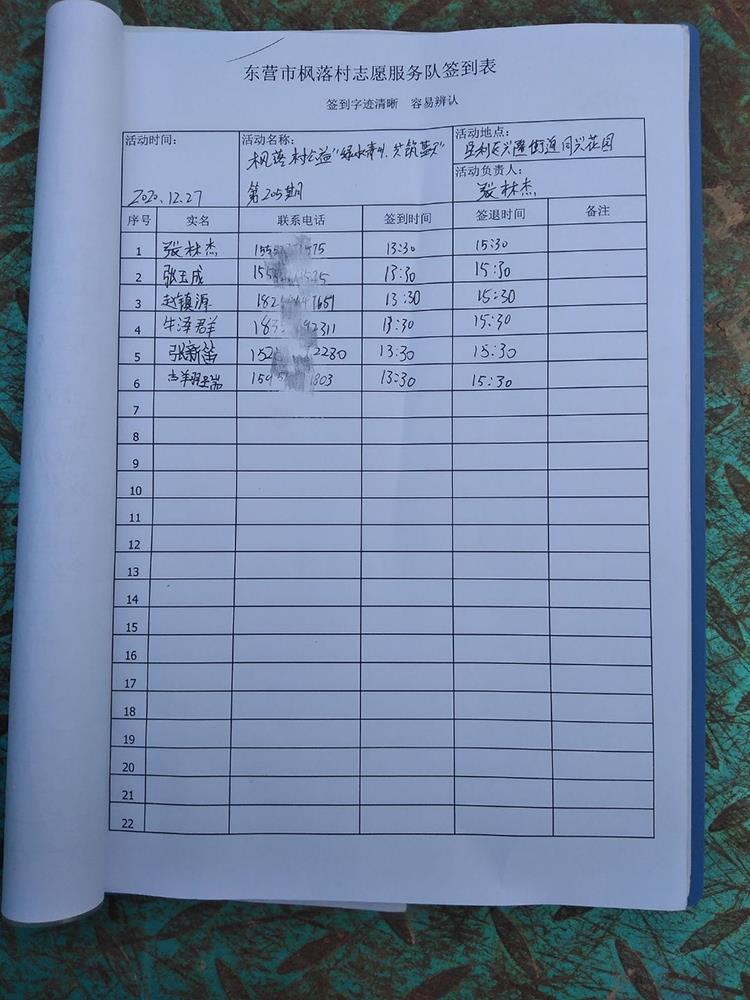 东营市枫落村志愿服务队签到表
签到字迹清晰 容易辨认
活动时间: 活动名称: 活动地点:
枫落村公益"绿水青山,共筑蓝天" 垦利区兴隆街道同兴花园
活动负责人:
2020.12.27 第205期 张林杰
序号 实名 联系电话 签到时间 签退时间 备注
1 张林杰 13:30 15:30
2 张玉成 13:30 15:30
3 赵镇源 13:30 15:30
4 牛泽群 13:30 15:30
5 张新笛 13:30 15:30
6 13:30 15:30
7
8
9
10
11
12
13
14
15
16
17
18
19
20
21
22